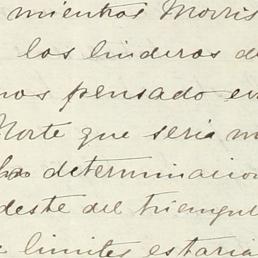 mientras Morris
los linderos de
mos pensado en
Norte que seria m
determinacion
deste del triangul
limites estaria